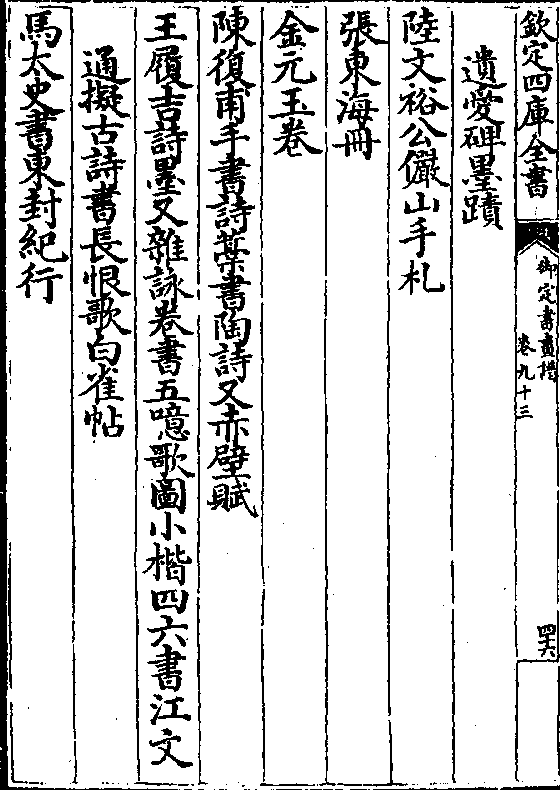 欽定四庫全書
御定書畫譜
卷九十三
四六
遺愛碑墨蹟
陸文裕公儼山手札
張東海冊
金元玉卷
陳復甫手書詩葉書陶詩又赤壁賦
王履吉詩墨又雜詠卷書五噫歌圖小楷四六書江文
通擬古詩書長恨歌白雀帖
馬太史書東封紀行